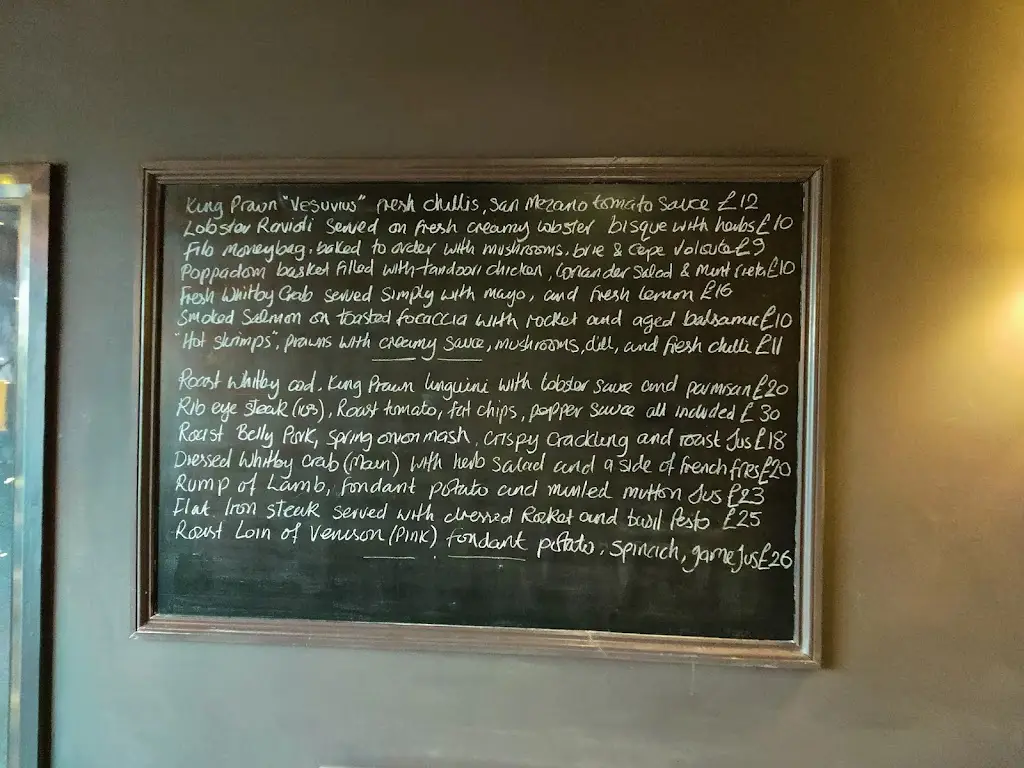 King Prawn "Vesuvius" fresh chillis, San Mezano tomato sauce £12
Lobster Ravioli Served on fresh creamy lobster bisque with herbs £10
Filo Moneybag, baked to order with mushrooms, brie & Cepe Veloute £9
Poppadom basket filled with tandoori chicken, Coriander Salad & Mint £10
Fresh Whitby Crab served simply with mayo, and fresh lemon £16
Smoked Salmon on toasted focaccia with rocket and aged balsamic £10
"Hot shrimps", prawns with creamy sauce, mushrooms, dill, and fresh chilli £11
Roast Whitby cod, King Prawn linguini with lobster sauce and parmisan £20
Rib eye steak (10oz), Roast tomato, fat chips, pepper sauce all included £30
Roast Belly Pork, spring onion mash, crispy crackling and roast Jus £18
Dressed Whitby Crab (Main) with herb salad and a side of french fries £20
Rump of Lamb, fondant potato and minted mutton Jus £23
Flat Iron steak served with dressed Rocket and basil Pesto £25
Roast Loin of Venison (Pink) fondant potato, spinach, game Jus £26